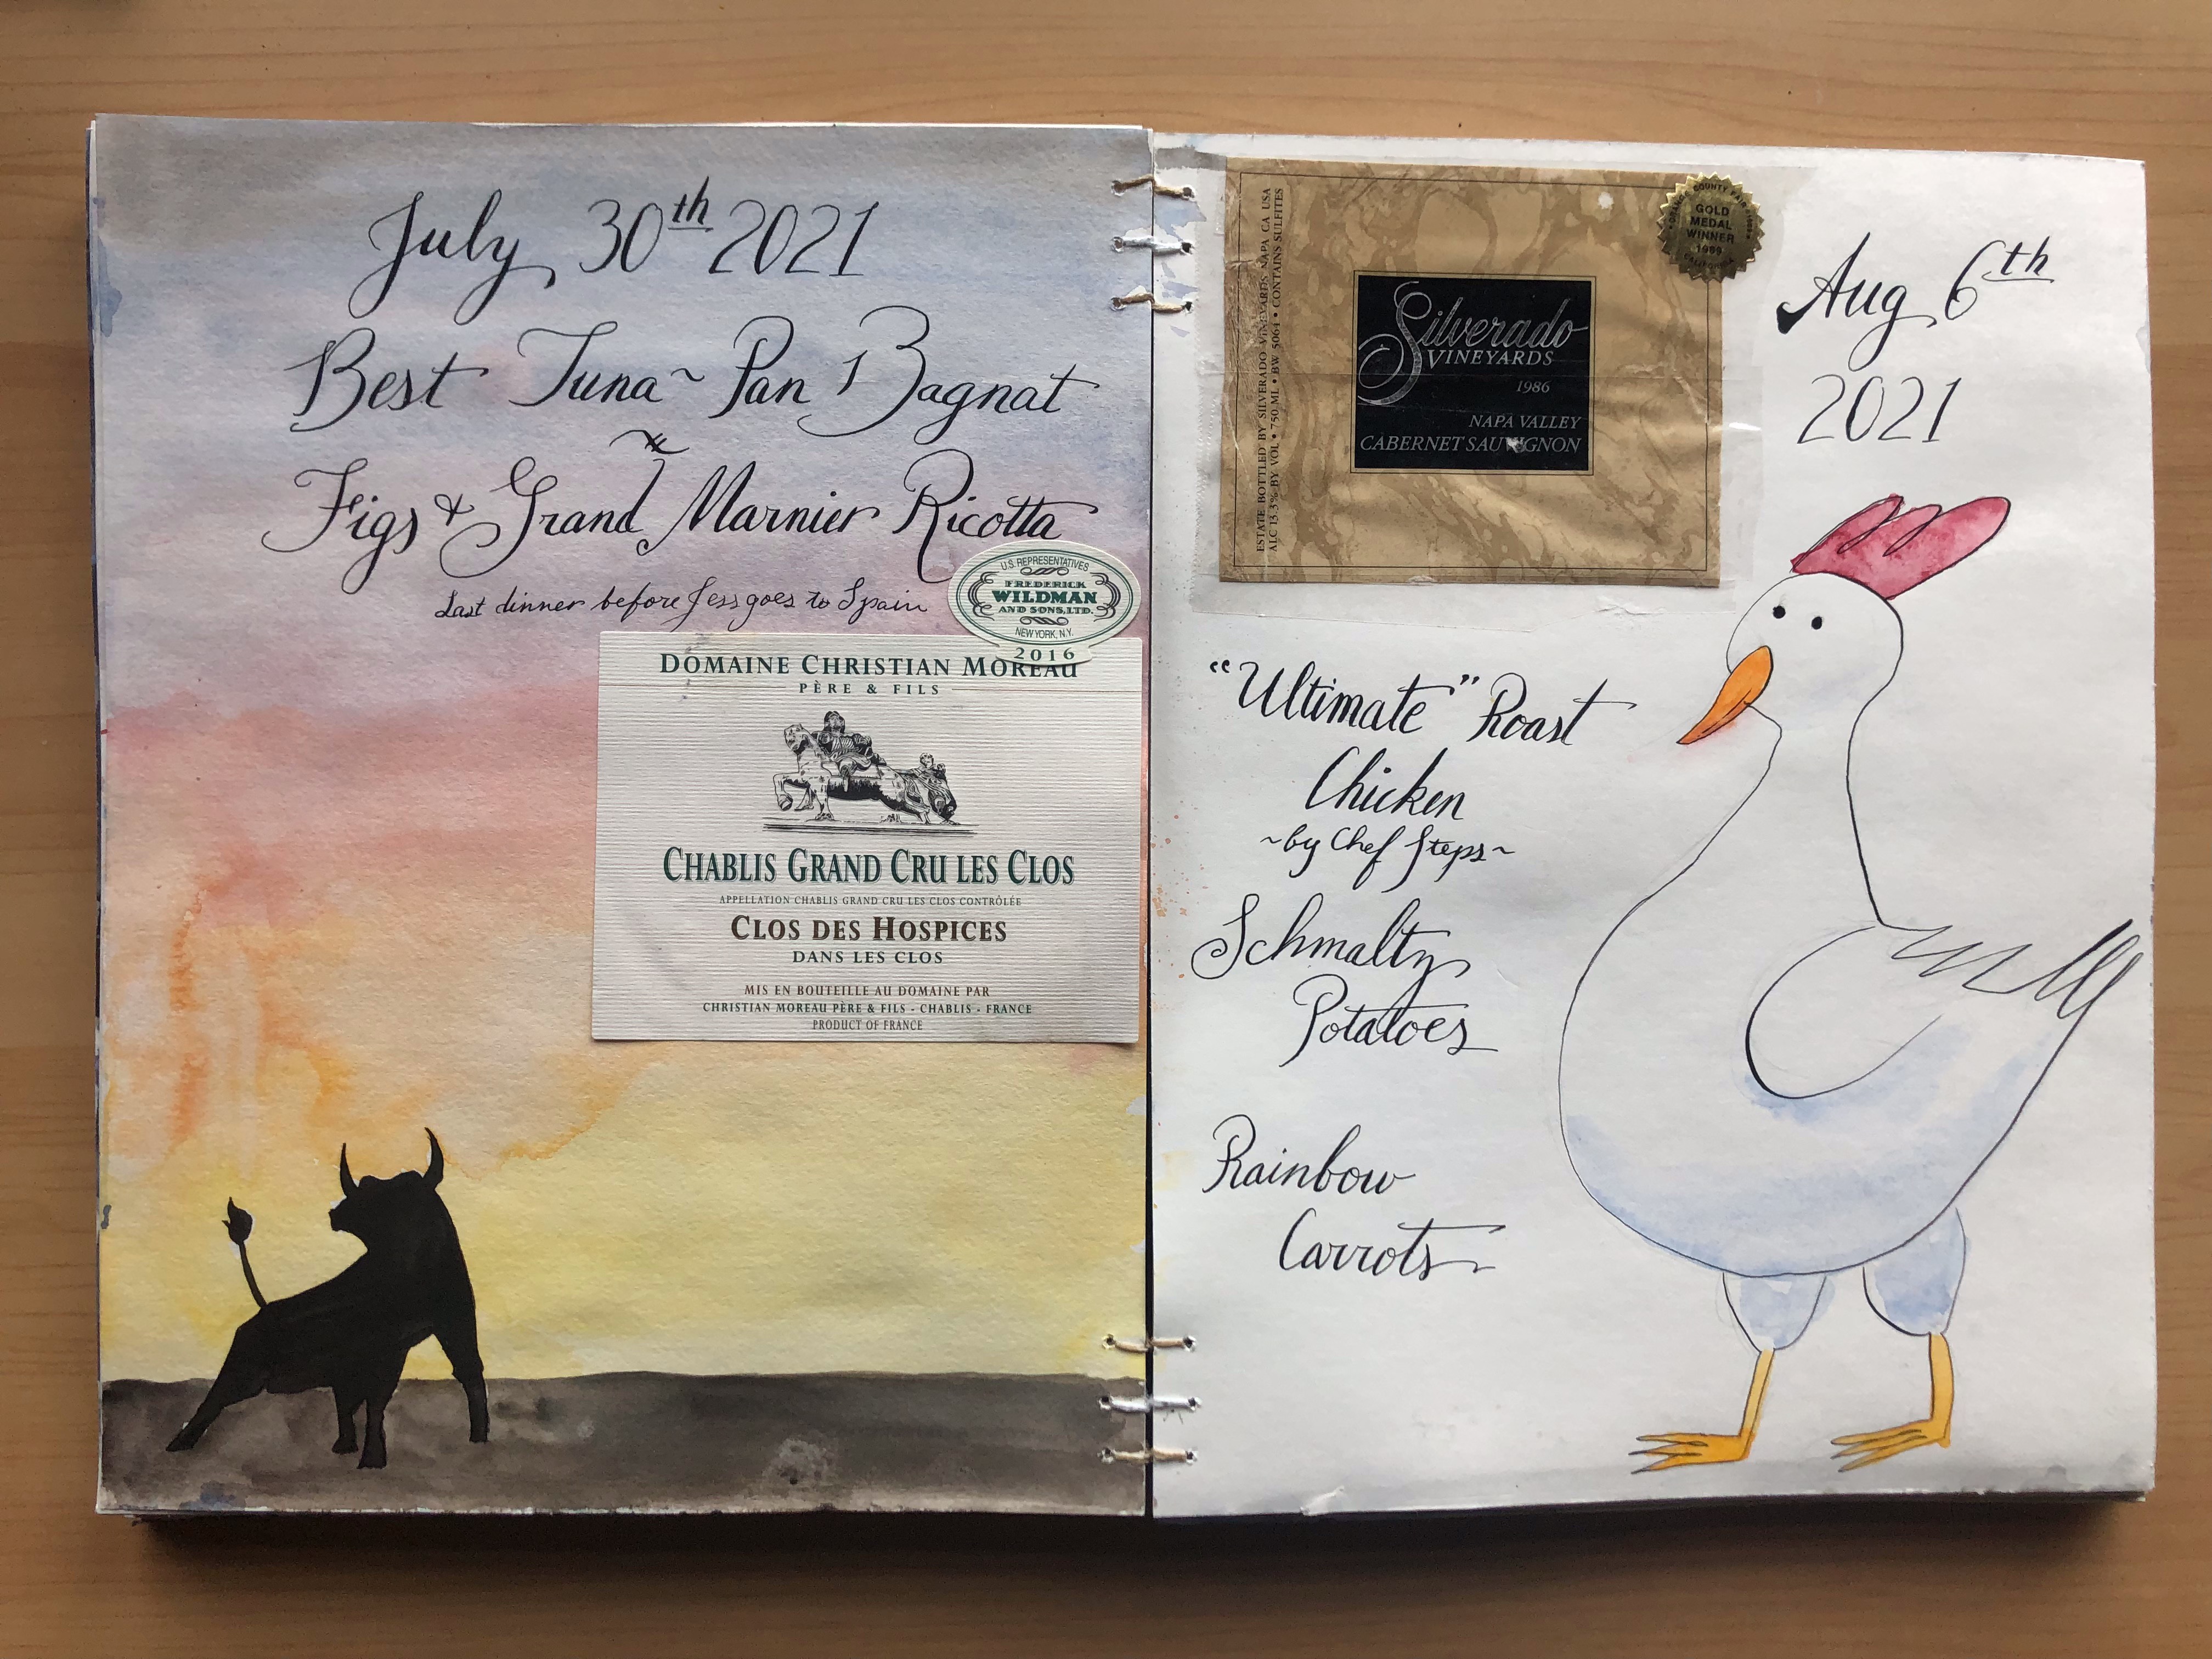 July 30th 2021
Best Tuna ~ Pan Bagnat
Figs & Grand Marnier Ricotta
Last dinner before Jess goes to Spain
U.S. REPRESENTATIVES
FREDERICK
WILDMAN
AND SONS, LTD.
NEW YORK, N.Y.
2016
DOMAINE CHRISTIAN MOREAU
PÈRE & FILS
CHABLIS GRAND CRU LES CLOS
APPELLATION CHABLIS GRAND CRU LES CLOS CONTRÔLÉE
CLOS DES HOSPICES
DANS LES CLOS
MIS EN BOUTEILLE AU DOMAINE PAR
CHRISTIAN MOREAU PÈRE & FILS - CHABLIS - FRANCE
PRODUCT OF FRANCE
ESTATE BOTTLED BY SILVERADO VINEYARDS NAPA CA USA
ALC 13.3% BY VOL • 750 ML • BW 5064 • CONTAINS SULFITES
Silverado
VINEYARDS
1986
NAPA VALLEY
CABERNET SAUVIGNON
ORANGE COUNTY FAIR
GOLD
MEDAL
WINNER
1989
CALIFORNIA
Aug 6th
2021
"Ultimate" Roast
Chicken
~by Chef Steps~
Schmaltzy
Potatoes
Rainbow
Carrots